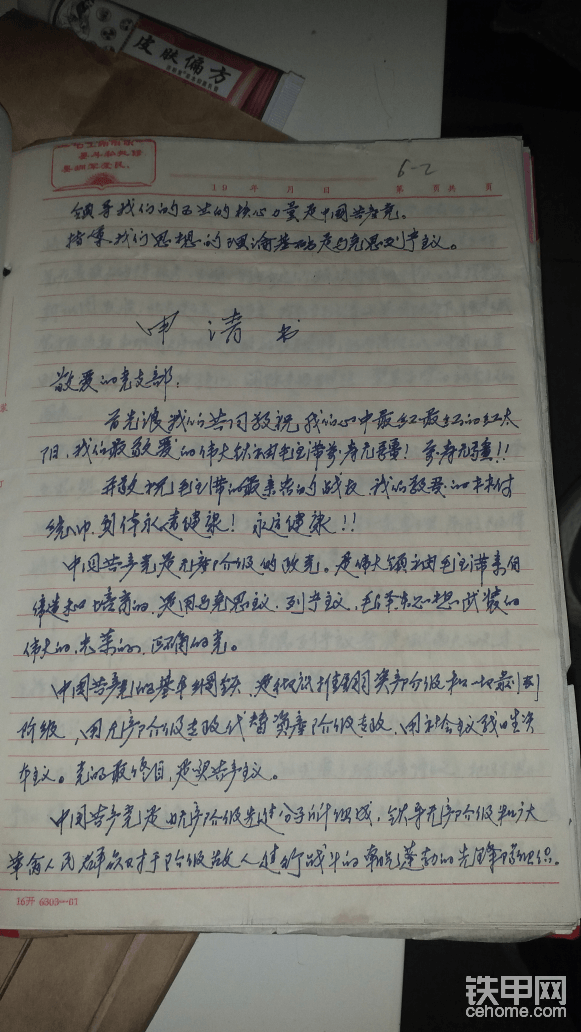 皮肤偏方
要斗私批修
要拥军爱民。
6-2
19 年 月 日 第 页共 页
领导我们的事业的核心力量是中国共产党。
指导我们思想的理论基础是马克思列宁主义。
申请书
敬爱的党支部:
首先让我们共同敬祝我们心中最红最红的红太
阳,我们最敬爱的伟大领袖毛主席万寿无疆!万寿无疆!!
并敬祝毛主席的最亲密的战友 我们敬爱的林付
统帅身体永远健康!永远健康!!
中国共产党是无产阶级的政党。是伟大领袖毛主席亲自
缔造和培育的,是用马克思主义、列宁主义、毛泽东思想武装的
伟大的、光荣的、正确的党。
中国共产党的基本纲领,是彻底推翻资产阶级和一切剥削
阶级,用无产阶级专政代替资产阶级专政,用社会主义战胜资
本主义。党的最终目的,是实现共产主义。
中国共产党是由无产阶级先进分子所组成,领导无产阶级和广大
革命人民群众对于阶级敌人进行战斗的朝气蓬勃的先锋队组织。
16开 6303—67
铁甲网
cehome.com